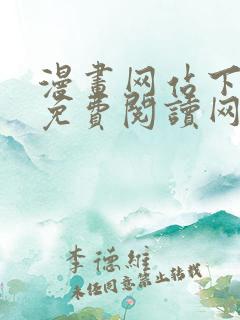 漫畫网站下
免費閱讀网
李德維
未经同意禁止转载